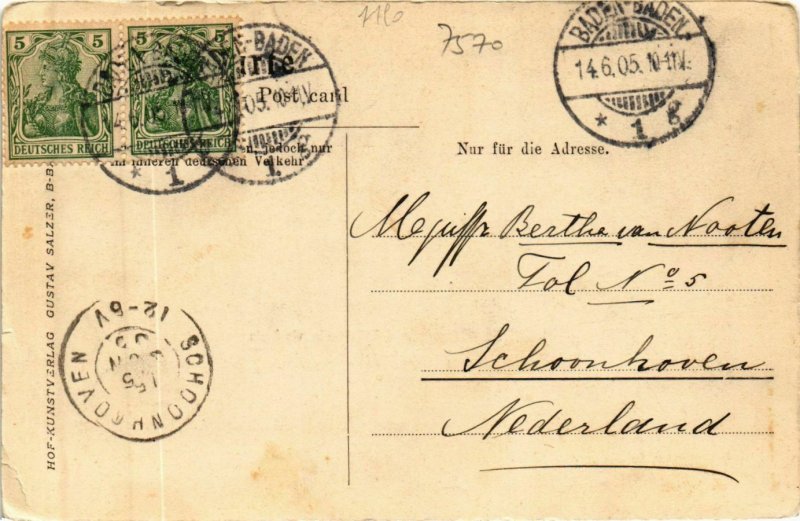 5 5
DEUTSCHES REICH DEUTSCHES REICH
7570
BADEN-BADEN
14.6.05.10-11V.
* 1 g
Post card
jedoch nur
im inneren deutschen Verkehr
Nur für die Adresse.
Mejuffr Berthe van Nooten
Tol No 5
Schoonhoven
Nederland
SCHOONHOVEN
12-6V
15 JUN 05
HOF-KUNSTVERLAG GUSTAV SALZER, B-B